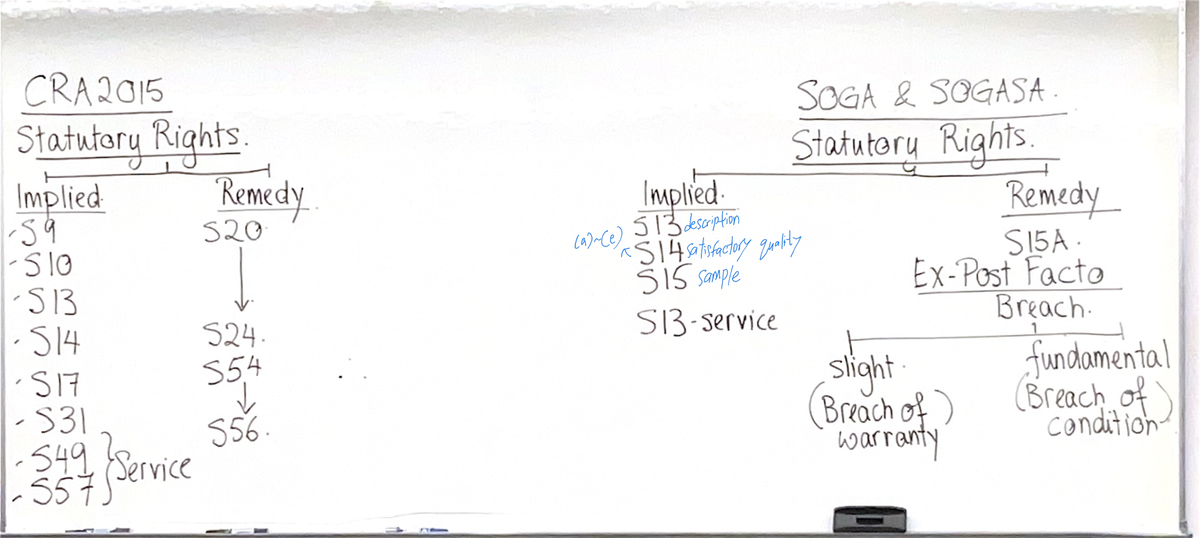 CRA 2015
Statutory Rights.
Implied.
- S9
- S10
- S13
- S14
- S17
- S31
- S49
- S57
} Service
Remedy
S20
S24.
S54
S56.
SOGA & SOGASA.
Statutory Rights.
Implied.
S13 description
(a)~(e) S14 satisfactory quality
S15 sample
S13-service
Remedy
S15A.
Ex-Post Facto
Breach.
slight.
(Breach of)
warranty
fundamental
(Breach of)
condition